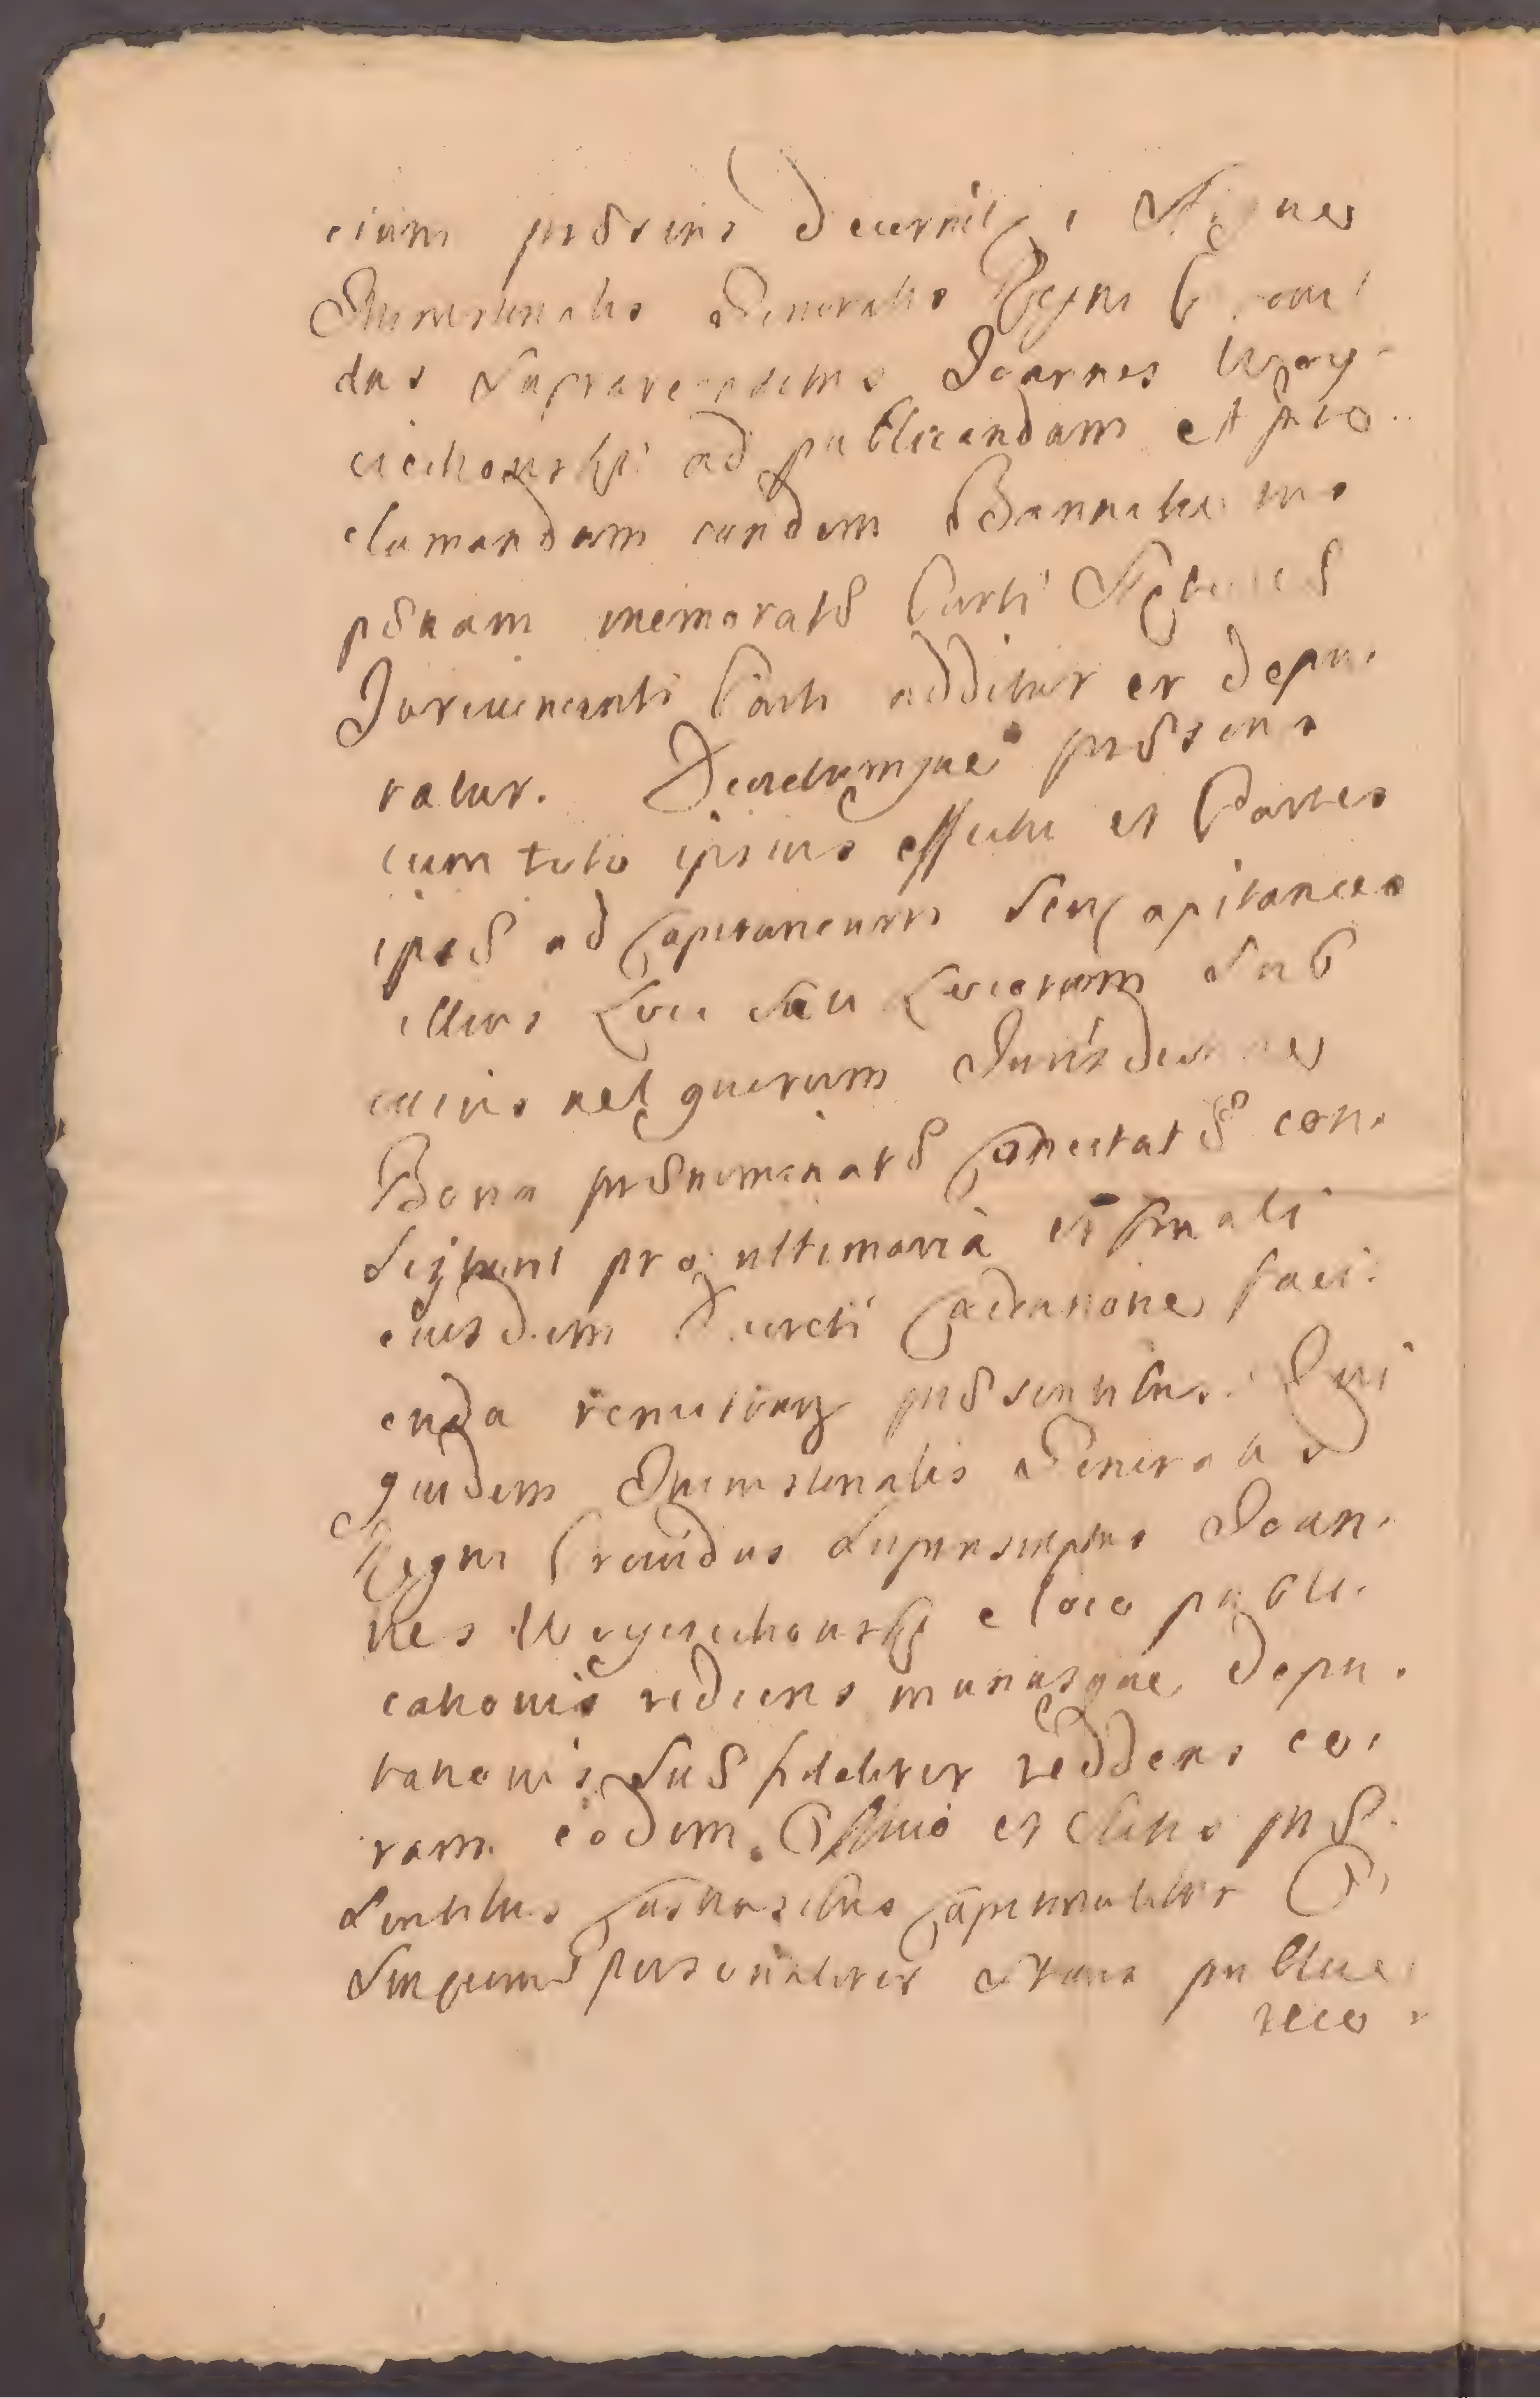 cium præsens decernit, Atque
Ministerialis Generalis Regni Provi
dus Supra recensitus Joannes Woy
ciechowski ad publicandam et pro
clamandam eandem Bannitionis
pænam memoratæ Parti
Jurevincenti Parti additur et depu
tatur. Decretumque præsens
cum toto ipsius effectu et Partes
ipsas ad Capitaneum seu Capitaneos
illius Loci seu Locorum sub
cuius vel quorum Jurisdictione
Bona prænominatæ Condictatæ con
sistunt pro ultimaria et finali
eiusdem Decreti Executione faci
enda remittitur præsentibus. Qui
quidem Ministerialis Generalis
Regni Providus suprascriptus Joan
nes Woyciechowski e loco publi
cationis rediens munusque depu
tationis suæ fideliter reddens co
ram eodem Officio et Actis præ
sentibus Castrensibus Capitanealibus
personaliter stans publice
reco